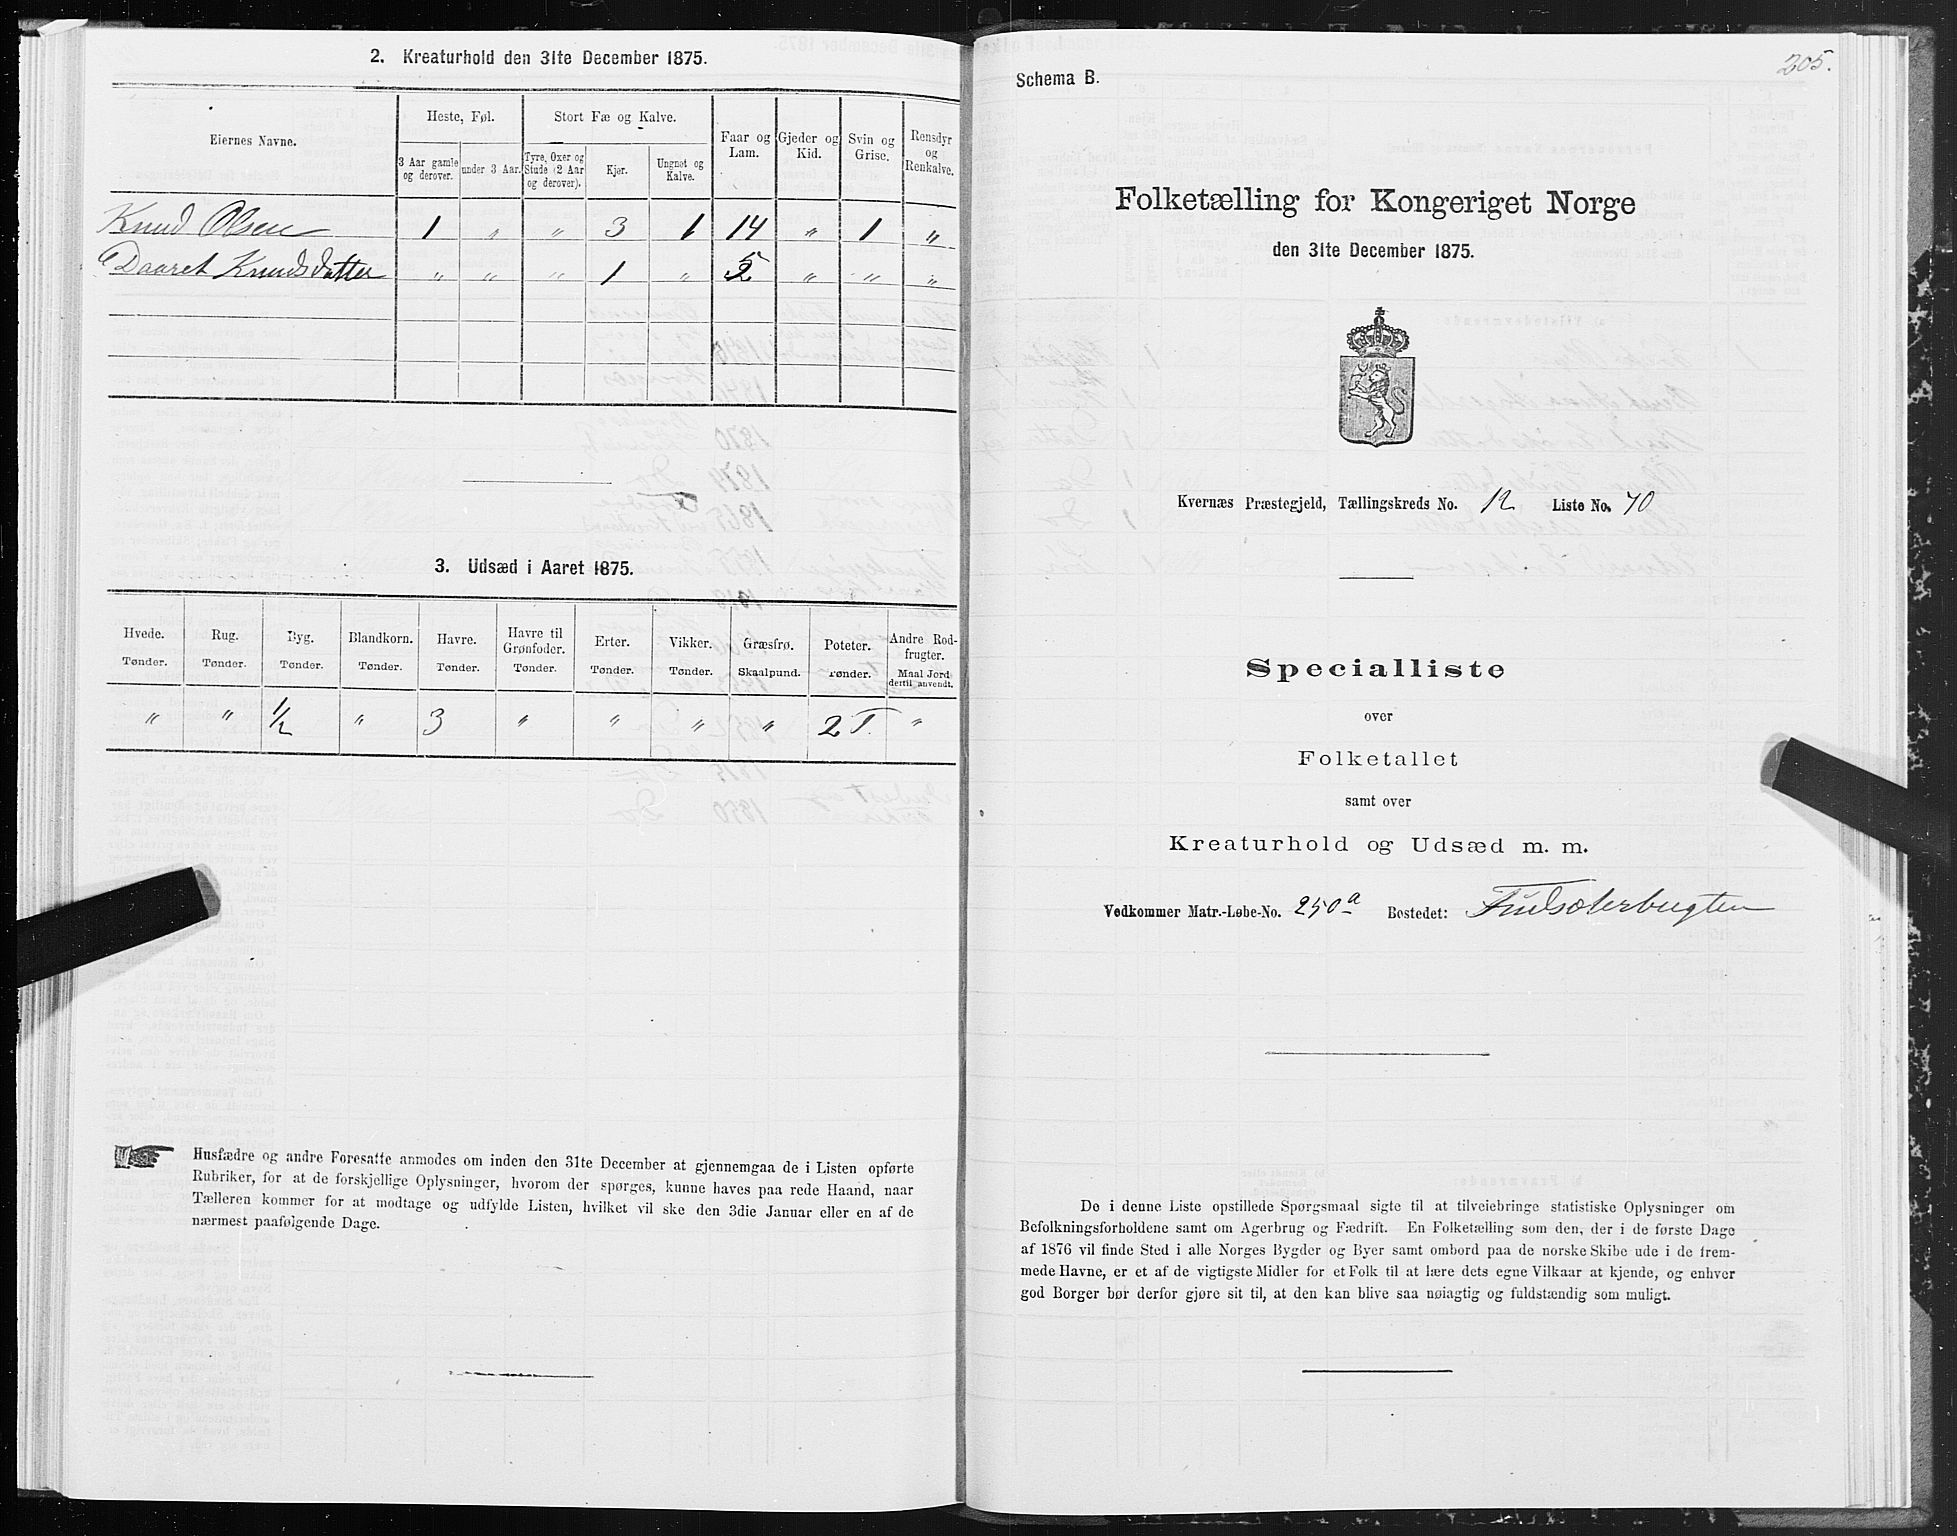 2. Kreaturhold den 31te December 1875.
Eiernes Navne.
Heste, Føl.
Stort Fæ og Kalve.
Faar og Lam.
Gjeder og Kid.
Svin og Grise.
Rensdyr og Renkalve.
3 Aar gamle og derover.
under 3 Aar.
Tyre, Oxer og Stude (2 Aar og derover).
Kjør.
Ungnøt og Kalve.
Knud Olsen 1 " " 3 1 14 " 1 "
Daaret Knudsdatter " " " 1 " 5 " " "
3. Udsæd i Aaret 1875.
Hvede. Rug. Byg. Blandkorn. Havre. Havre til Grønfoder. Erter. Vikker. Græsfrø. Poteter. Andre Rodfrugter.
Tønder. Tønder. Tønder. Tønder. Tønder. Tønder. Tønder. Tønder. Skaalpund. Tønder. Maal Jord dertil anvendt.
" " 1/2 " 3 " " " " 2 T. "
Husfædre og andre Foresatte anmodes om inden den 31te December at gjennemgaa de i Listen opførte
Rubriker, for at de forskjellige Oplysninger, hvorom der spørges, kunne haves paa rede Haand, naar
Tælleren kommer for at modtage og udfylde Listen, hvilket vil ske den 3die Januar eller en af de
nærmest paafølgende Dage.
205.
Schema B.
Folketælling for Kongeriget Norge
den 31te December 1875.
Kvernæs Præstegjeld, Tællingskreds No. 12 Liste No. 70
Specialliste
over
Folketallet
samt over
Kreaturhold og Udsæd m. m.
Vedkommer Matr.-Løbe-No. 250a Bostedet:
De i denne Liste opstillede Spørgsmaal sigte til at tilveiebringe statistiske Oplysninger om
Befolkningsforholdene samt om Agerbrug og Fædrift. En Folketælling som den, der i de første Dage
af 1876 vil finde Sted i alle Norges Bygder og Byer samt ombord paa de norske Skibe ude i de frem-
mede Havne, er et af de vigtigste Midler for et Folk til at lære dets egne Vilkaar at kjende, og enhver
god Borger bør derfor gjøre sit til, at den kan blive saa nøiagtig og fuldstændig som muligt.